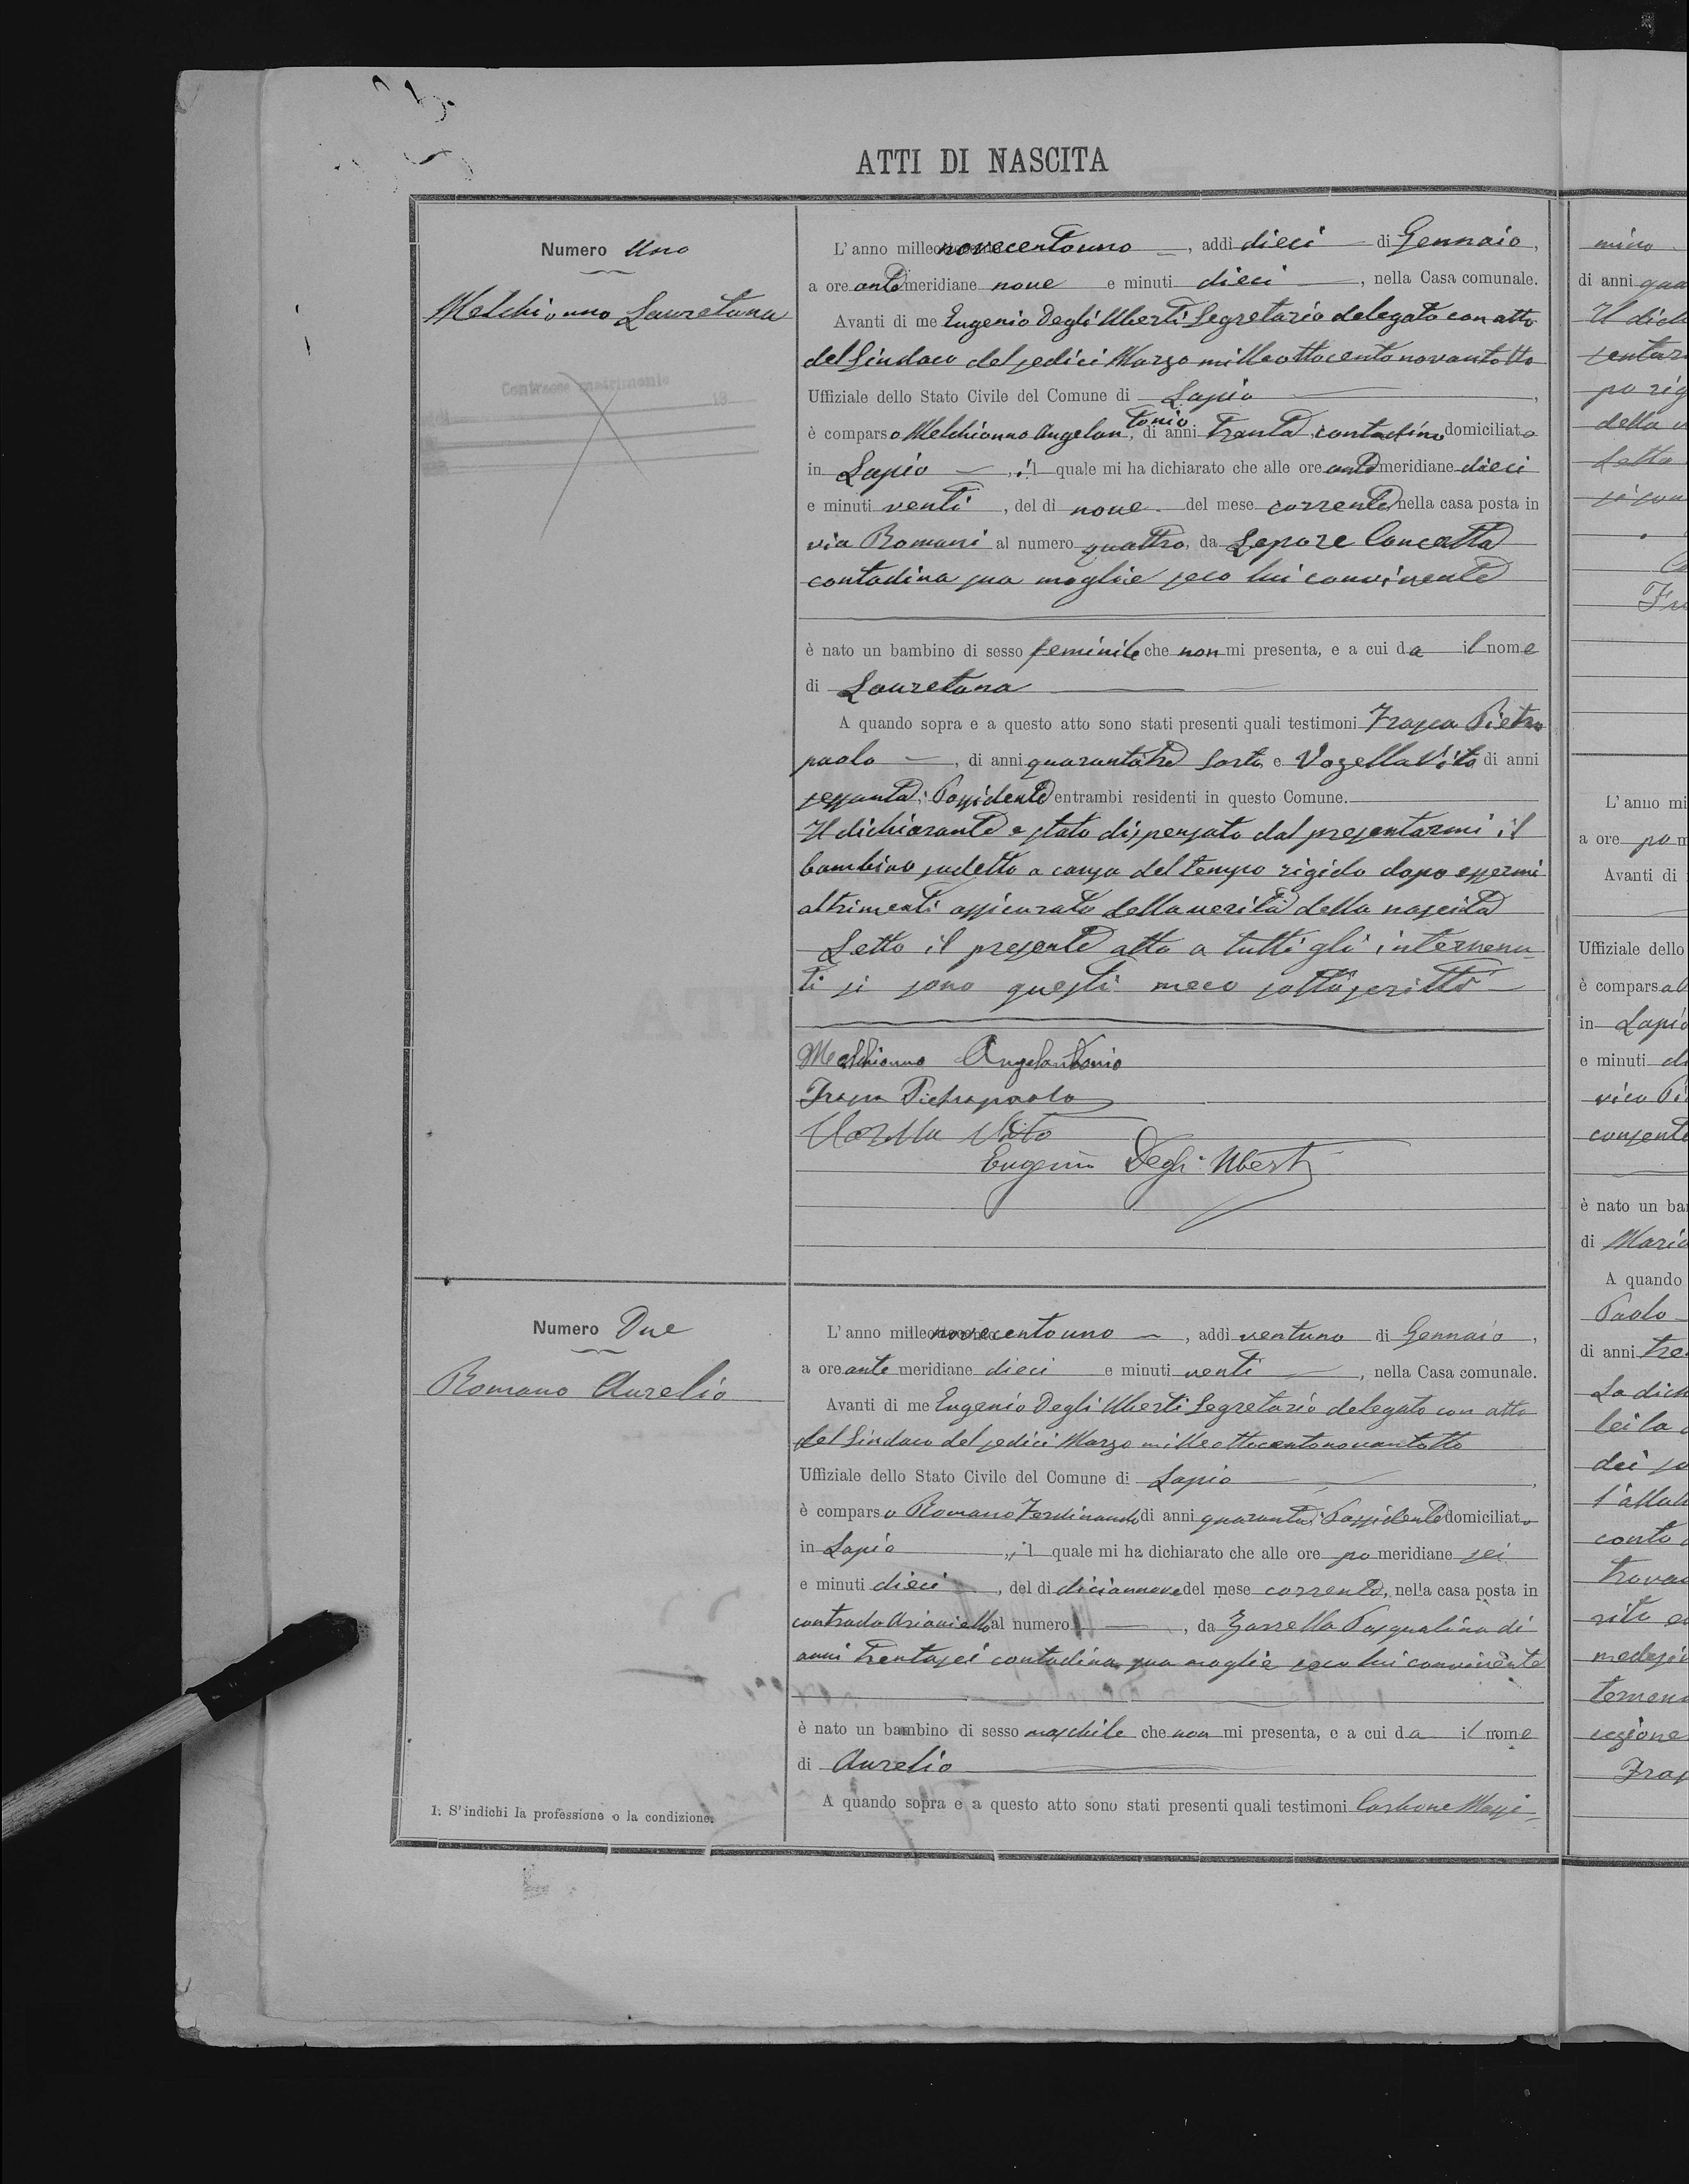 ATTI DI NASCITA
Numero Uno
Melchionno Lauretana
Contrasse matrimonio
addì 19
L'anno millenovecentouno —, addì dieci di Gennaio,
a ore antemeridiane nove e minuti dieci —, nella Casa comunale.
Avanti di me Eugenio Degli Uberti Segretario delegato con atto
del Sindaco del sedici Marzo milleottocentonovantotto
Uffiziale dello Stato Civile del Comune di Lapio,
è comparso Melchionno Angelantonio, di anni trenta, contadino domiciliato
in Lapio —, il quale mi ha dichiarato che alle ore antemeridiane dieci
e minuti venti, del dì nove del mese corrente, nella casa posta in
via Romani al numero quattro, da Lepore Concetta
contadina sua moglie seco lui convivente
è nato un bambino di sesso feminile che non mi presenta, e a cui da il nome
di Lauretana
A quando sopra e a questo atto sono stati presenti quali testimoni Frasca Pietro
paolo —, di anni quarantatre sarto, e Vozella Vito di anni
sessanta, Possidente entrambi residenti in questo Comune.
Il dichiarante e stato dispensato dal presentarmi il
bambino sudetto a causa del tempo rigido dopo essermi
altrimenti assicurato della verità della nascita
Letto il presente atto a tutti gli intervenu-
ti si sono questi meco sottoscritti
Melchionno Angelantonio
Frasca Pietropaolo
Vozella Vito
Eugenio Degli Uberti
Numero Due
Romano Aurelio
L'anno millenovecentouno —, addì ventuno di Gennaio,
a ore antemeridiane dieci e minuti venti —, nella Casa comunale.
Avanti di me Eugenio Degli Uberti Segretario delegato con atto
del Sindaco del sedici Marzo milleottocentonovantotto
Uffiziale dello Stato Civile del Comune di Lapio,
è comparso Romano Ferdinando di anni quaranta, Possidente domiciliato
in Lapio, il quale mi ha dichiarato che alle ore pomeridiane sei
e minuti dieci —, del dì diciannove del mese corrente, nella casa posta in
contrada Arianiello al numero —, da Zarrella Pasqualina di
anni trentasei contadina sua moglie seco lui convivente
è nato un bambino di sesso maschile che non mi presenta, e a cui da il nome
di Aurelio
A quando sopra e a questo atto sono stati presenti quali testimoni Carbone Massi-
1. S'indichi la professione o la condizione.
mino
di anni qua
Il dich
sentar
po rig
della v
Letto
si son
Fra
L'anno mi
a ore pom
Avanti di
Uffiziale dello
è comparsa
in Lapio
e minuti di
vico Pi
consente
è nato un ba
di Maria
A quando
Paolo
di anni tre
La dich
lei la
dei
l'allat
conto
trova
rito
medesi
temen
cezione
Fras